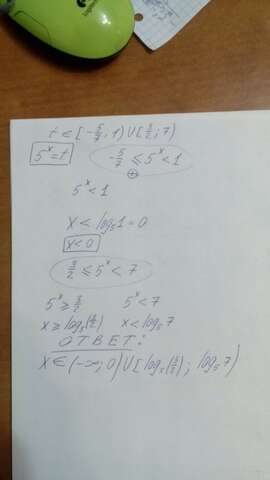 t ∈ [-5/7; 1) U [3/2; 7)
5^x = t
-5/7 ≤ 5^x < 1
5^x < 1
x < log_5 1 = 0
x < 0
3/2 ≤ 5^x < 7
5^x ≥ 3/2 5^x < 7
x ≥ log_5(3/2) x < log_5 7
ОТВЕТ:
x ∈ (-∞; 0) U [log_5(3/2); log_5 7)